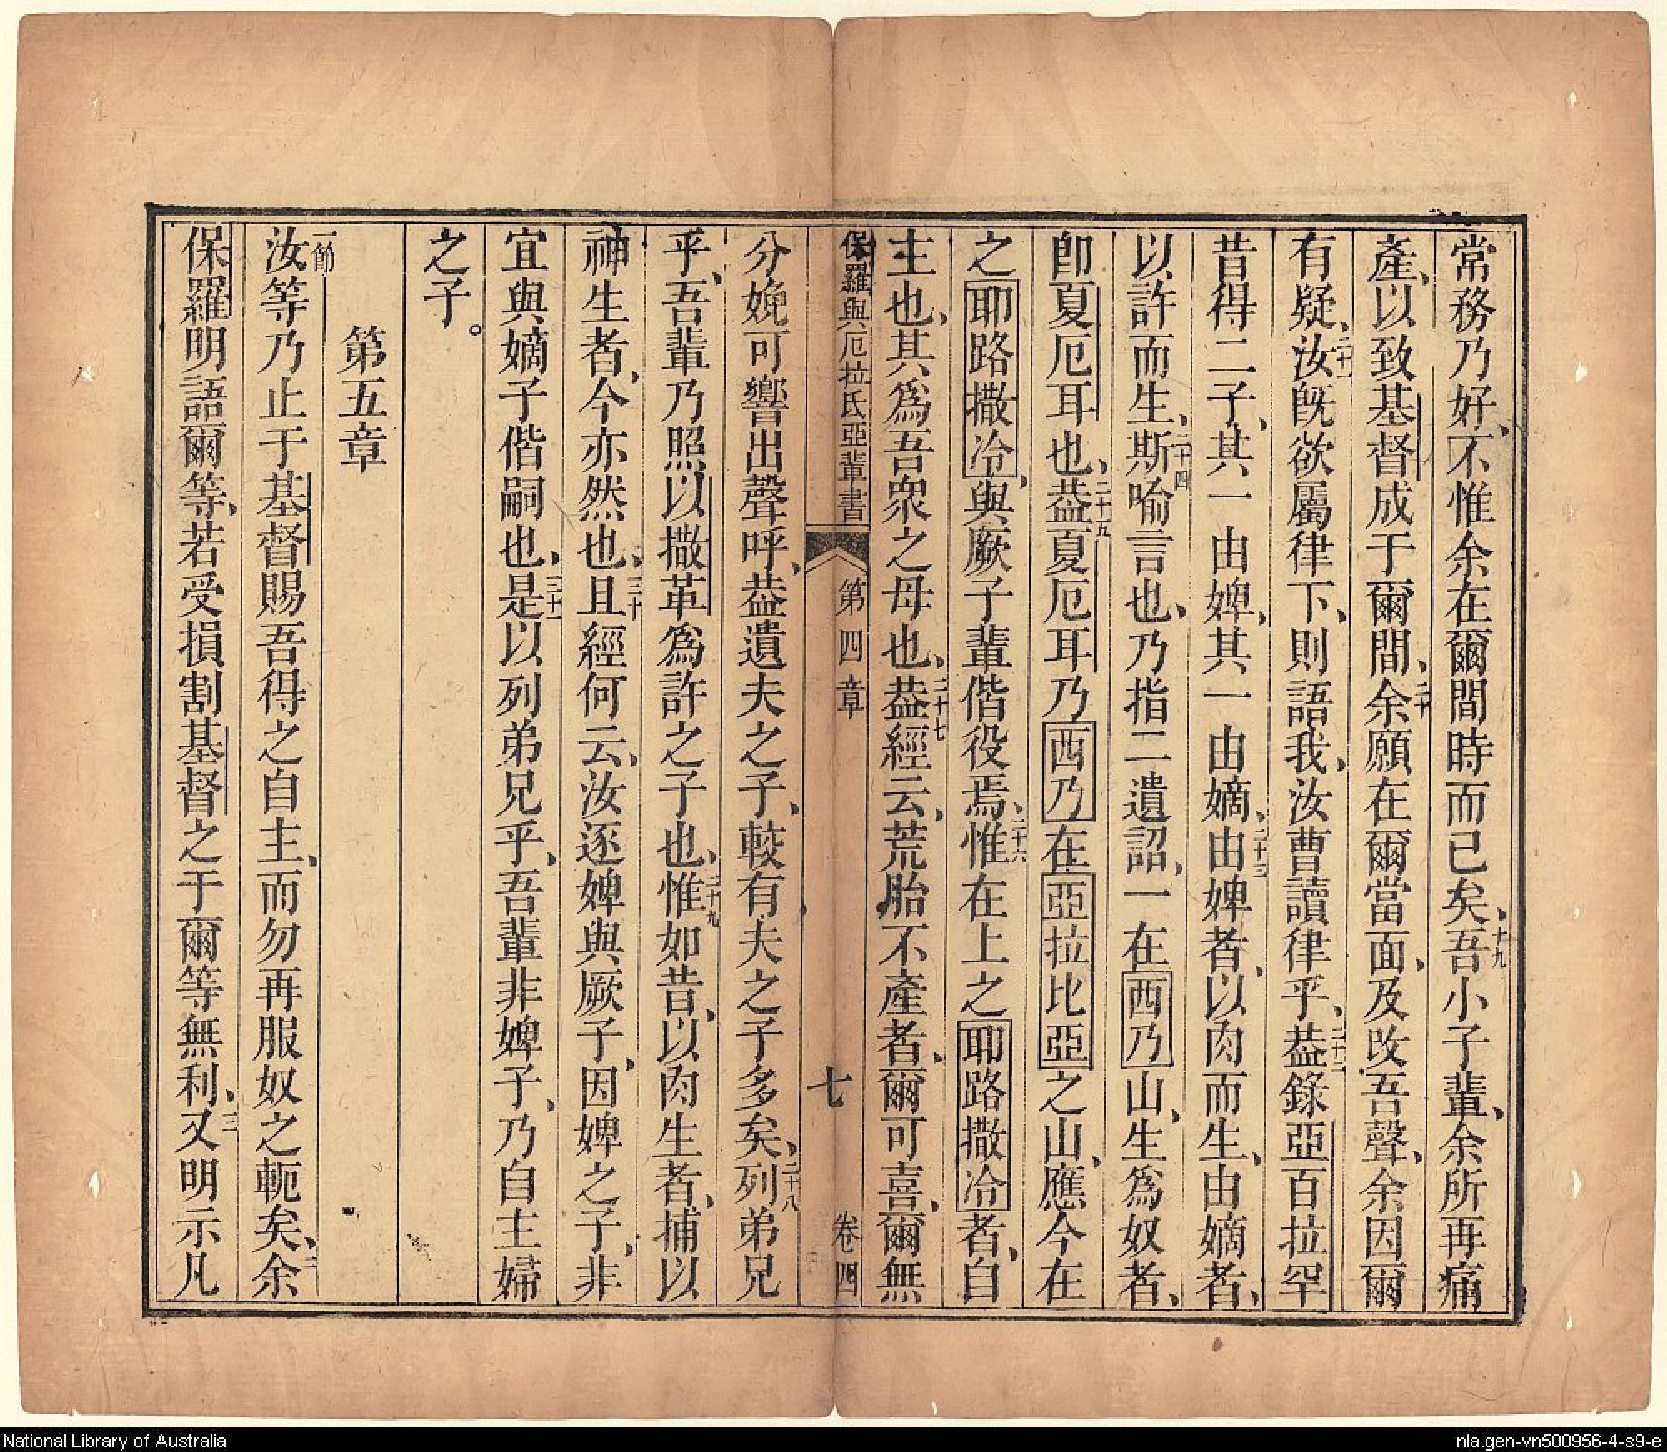 常務乃好、不惟余在爾間時而已矣、十九吾小子輩、余所再痛
產、以致基督成于爾間、二十余願在爾當面、及改吾聲、余因爾
有疑、二十一汝旣欲屬律下、則語我、汝曹讀律乎、二十二葢錄亞百拉罕
昔得二子、其一由婢、其一由嫡、二十三由婢者、以肉而生、由嫡者、
以許而生、二十四斯喻言也、乃指二遺詔、一在西乃山、生為奴者、
卽夏厄耳也、二十五葢夏厄耳乃西乃在亞拉比亞之山、應今在
之耶路撒冷、與厥子輩偕役焉、二十六惟在上之耶路撒冷者、自
主也、其為吾眾之母也、二十七葢經云、荒胎不產者、爾可喜、爾無
保羅與厄拉氏亞輩書 第四章 七 卷四
分娩可響出聲呼、葢遺夫之子、較有夫之子多矣、二十八列弟兄
乎、吾輩乃照以撒革為許之子也、二十九惟如昔、以肉生者、捕以
神生者、今亦然也、三十且經何云、汝逐婢與厥子、因婢之子、非
宜與嫡子偕嗣也、三十一是以列弟兄乎、吾輩非婢子、乃自主婦
之子。
第五章
一節汝等乃止于基督賜吾得之自主、而勿再服奴之軛矣、二余
保羅明語爾等、若受損割基督之于爾等無利、三又明示凡
National Library of Australia
nla.gen-vn500956-4-s9-e